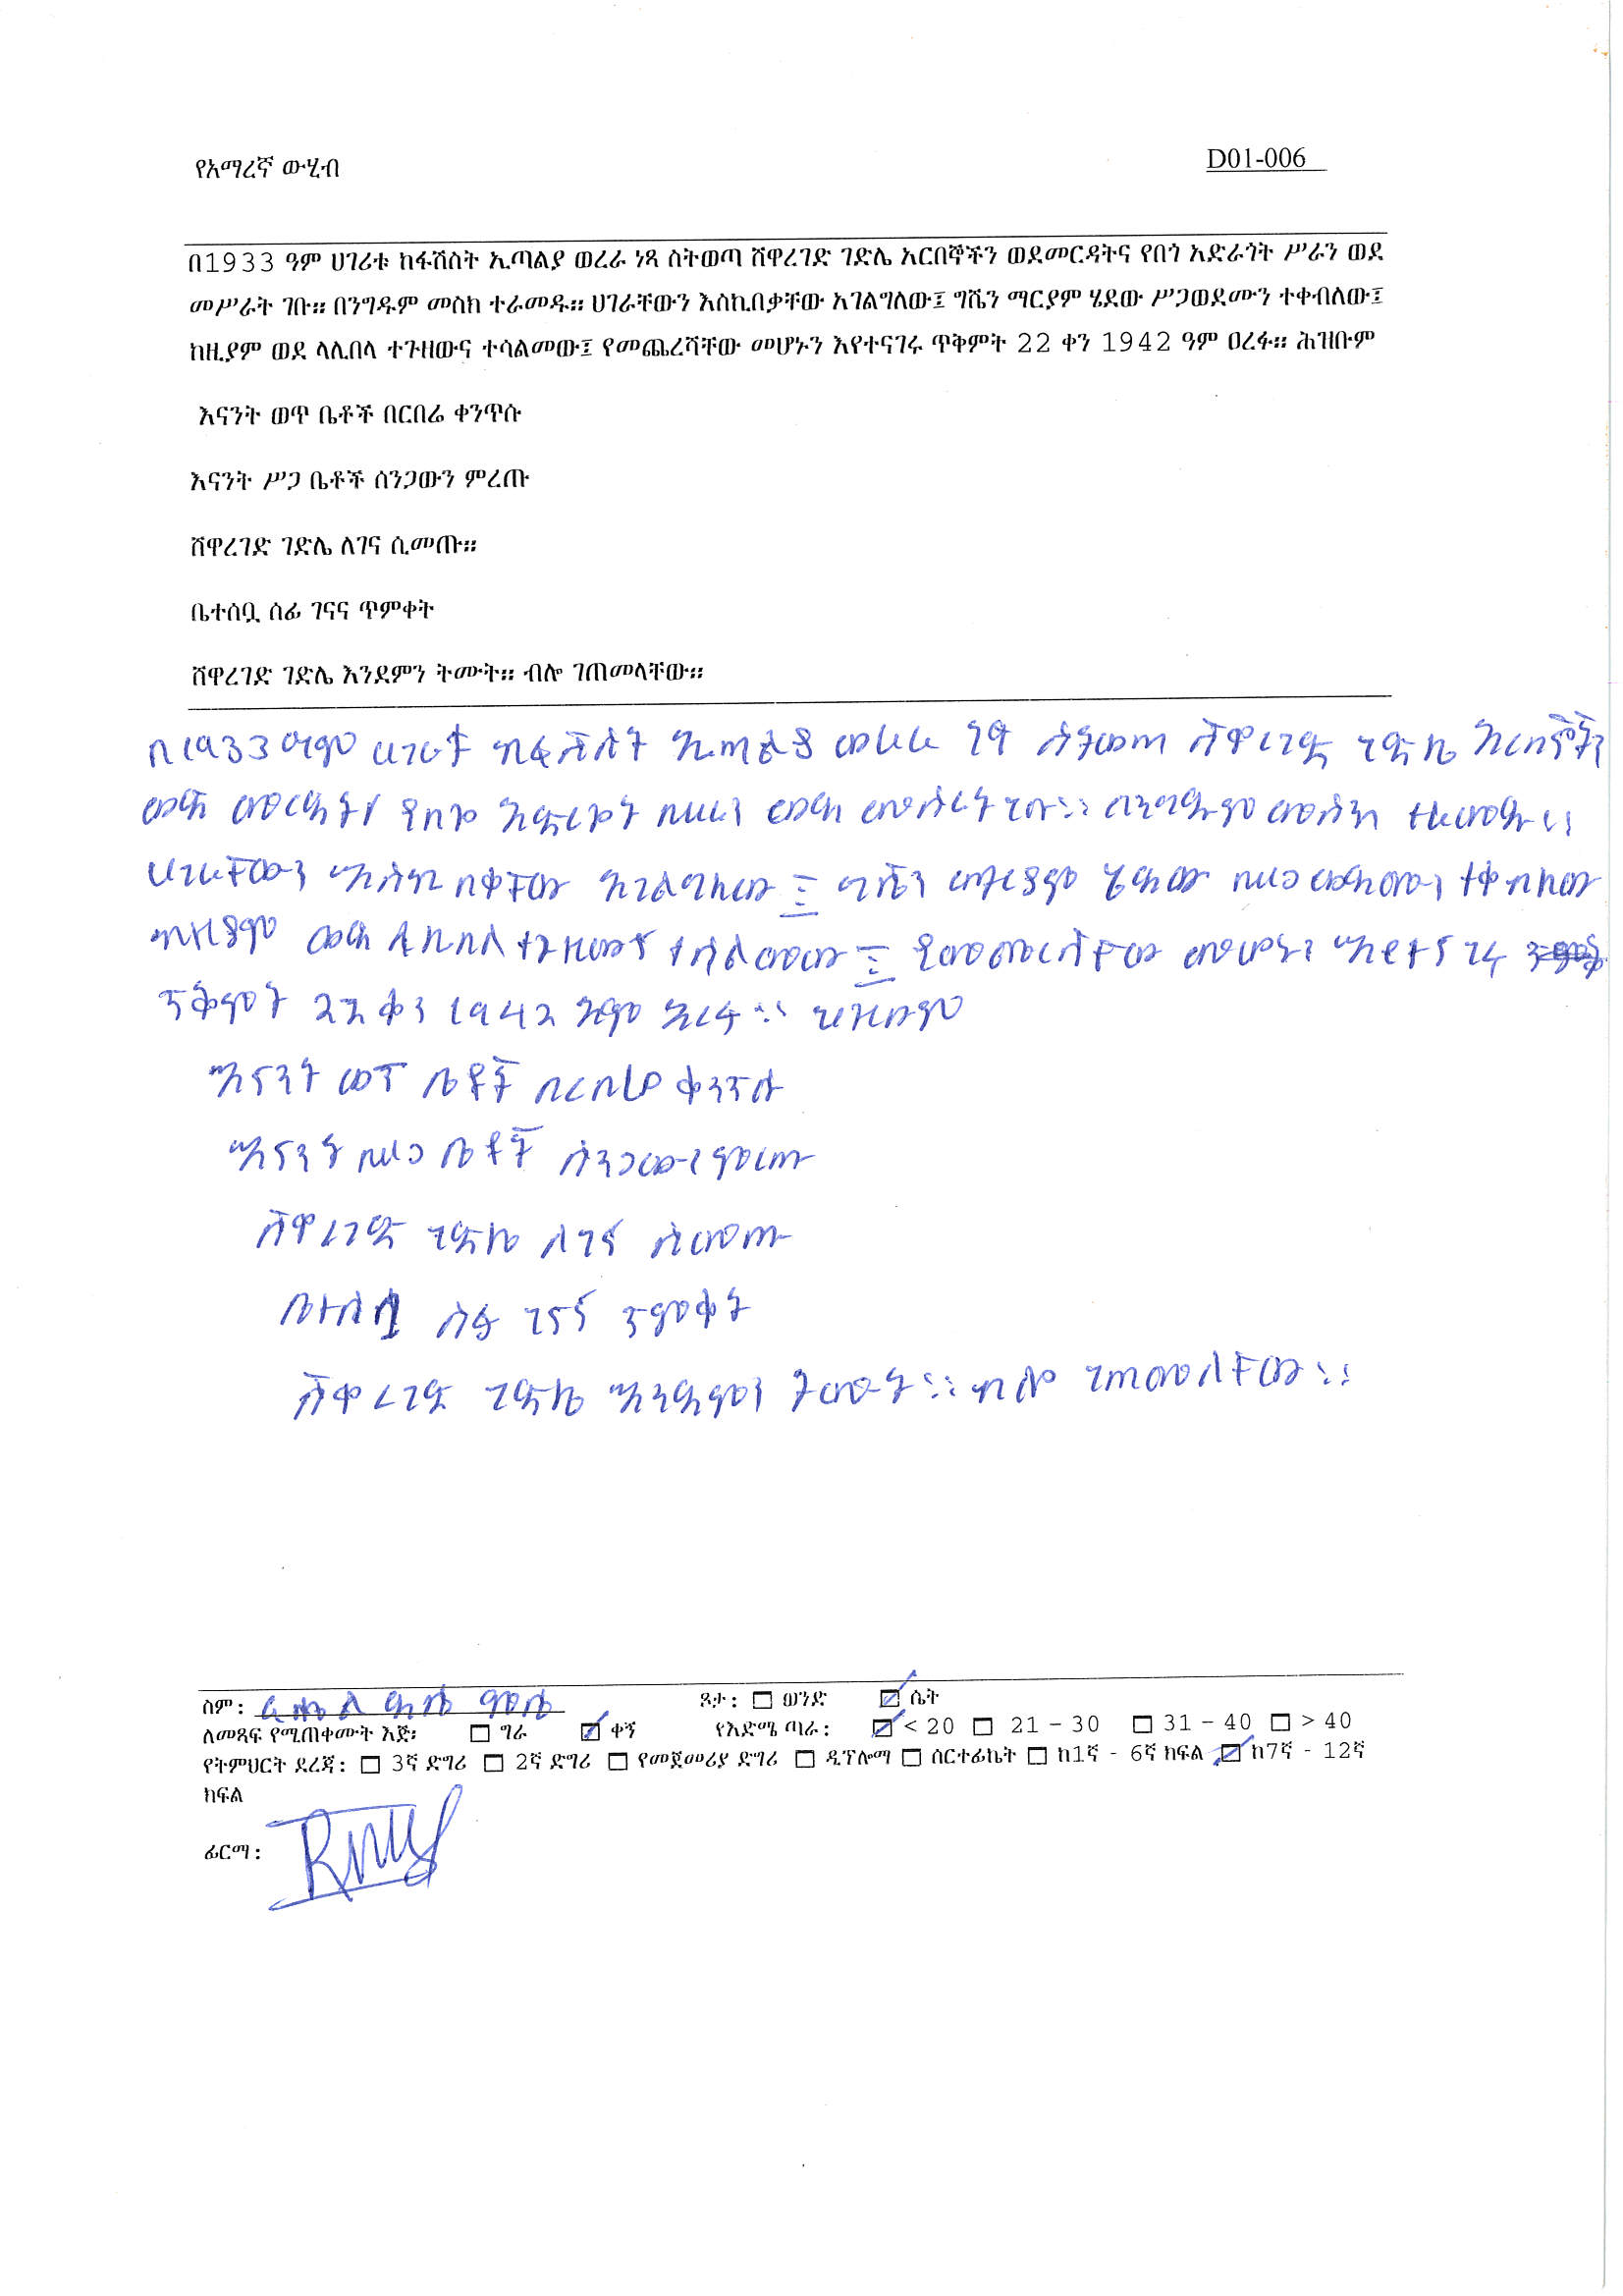 የአማረኛ ውሂብ
D01-006
በ1933 ዓም ሀገሪቱ ከፋሽስት ኢጣልያ ወረራ ነጻ ስትወጣ ሸዋረገድ ገድሌ አርበኞችን ወደመርዳትና የበጎ አድራጎት ሥራን ወደ
መሥራት ገቡ። በንግዱም መስክ ተራመዱ። ሀገራቸውን እስኪበቃቸው አገልግለው፤ ግሼን ማርያም ሄደው ሥጋወደሙን ተቀብለው፤
ከዚያም ወደ ላሊበላ ተጉዘውና ተሳልመው፤ የመጨረሻቸው መሆኑን እየተናገሩ ጥቅምት 22 ቀን 1942 ዓም ዐረፉ። ሕዝቡም
እናንት ወጥ ቤቶች በርበሬ ቀንጥሱ
እናንት ሥጋ ቤቶች ሰንጋውን ምረጡ
ሸዋረገድ ገድሌ ለገና ሲመጡ።
ቤተሰቧ ሰፊ ገናና ጥምቀት
ሸዋረገድ ገድሌ እንደምን ትሙት። ብሎ ገጠመላቸው።
በ1933 ዓም ሀገሪቱ ከፋሽስት ኢጣልያ ወረራ ነጻ ስትወጣ ሸዋረገድ ገድሌ አርበኞችን
ወደ መርዳትና የበጎ አድራጎት ሥራን ወደ መሥራት ገቡ። በንግዱም መስክ ተራመዱ።
ሀገራቸውን እስኪ በቃቸው አገልግለው ፤ ግሼን ማርያም ሄደው ሥጋ ወደሙን ተቀብለው
ከዚያም ወደ ላሊበላ ተጉዘውና ተሳልመው ፤ የመጨረሻቸው መሆኑን እየተናገሩ
ጥቅምት 22 ቀን 1942 ዓም አረፉ። ህዝቡም
እናንት ወጥ ቤቶች በርበሬ ቀንጥሱ
እናንት ሥጋ ቤቶች ሰንጋውን ምረጡ
ሸዋረገድ ገድሌ ለገና ሲመጡ
ቤተሰቧ ሰፊ ገናና ጥምቀት
ሸዋረገድ ገድሌ እንደምን ትሙት። ብሎ ገጠመላቸው።
ስም: ፆታ: ☐ ወንድ ☑ ሴት
ለመጻፍ የሚጠቀሙት እጅ፡ ☐ ግራ ☑ ቀኝ የእድሜ ጣራ: ☑ < 20 ☐ 21 – 30 ☐ 31 – 40 ☐ > 40
የትምህርት ደረጃ: ☐ 3ኛ ድግሪ ☐ 2ኛ ድግሪ ☐ የመጀመሪያ ድግሪ ☐ ዲፕሎማ ☐ ሰርተፊኬት ☐ ከ1ኛ - 6ኛ ክፍል ☑ ከ7ኛ - 12ኛ
ክፍል
ፊርማ: